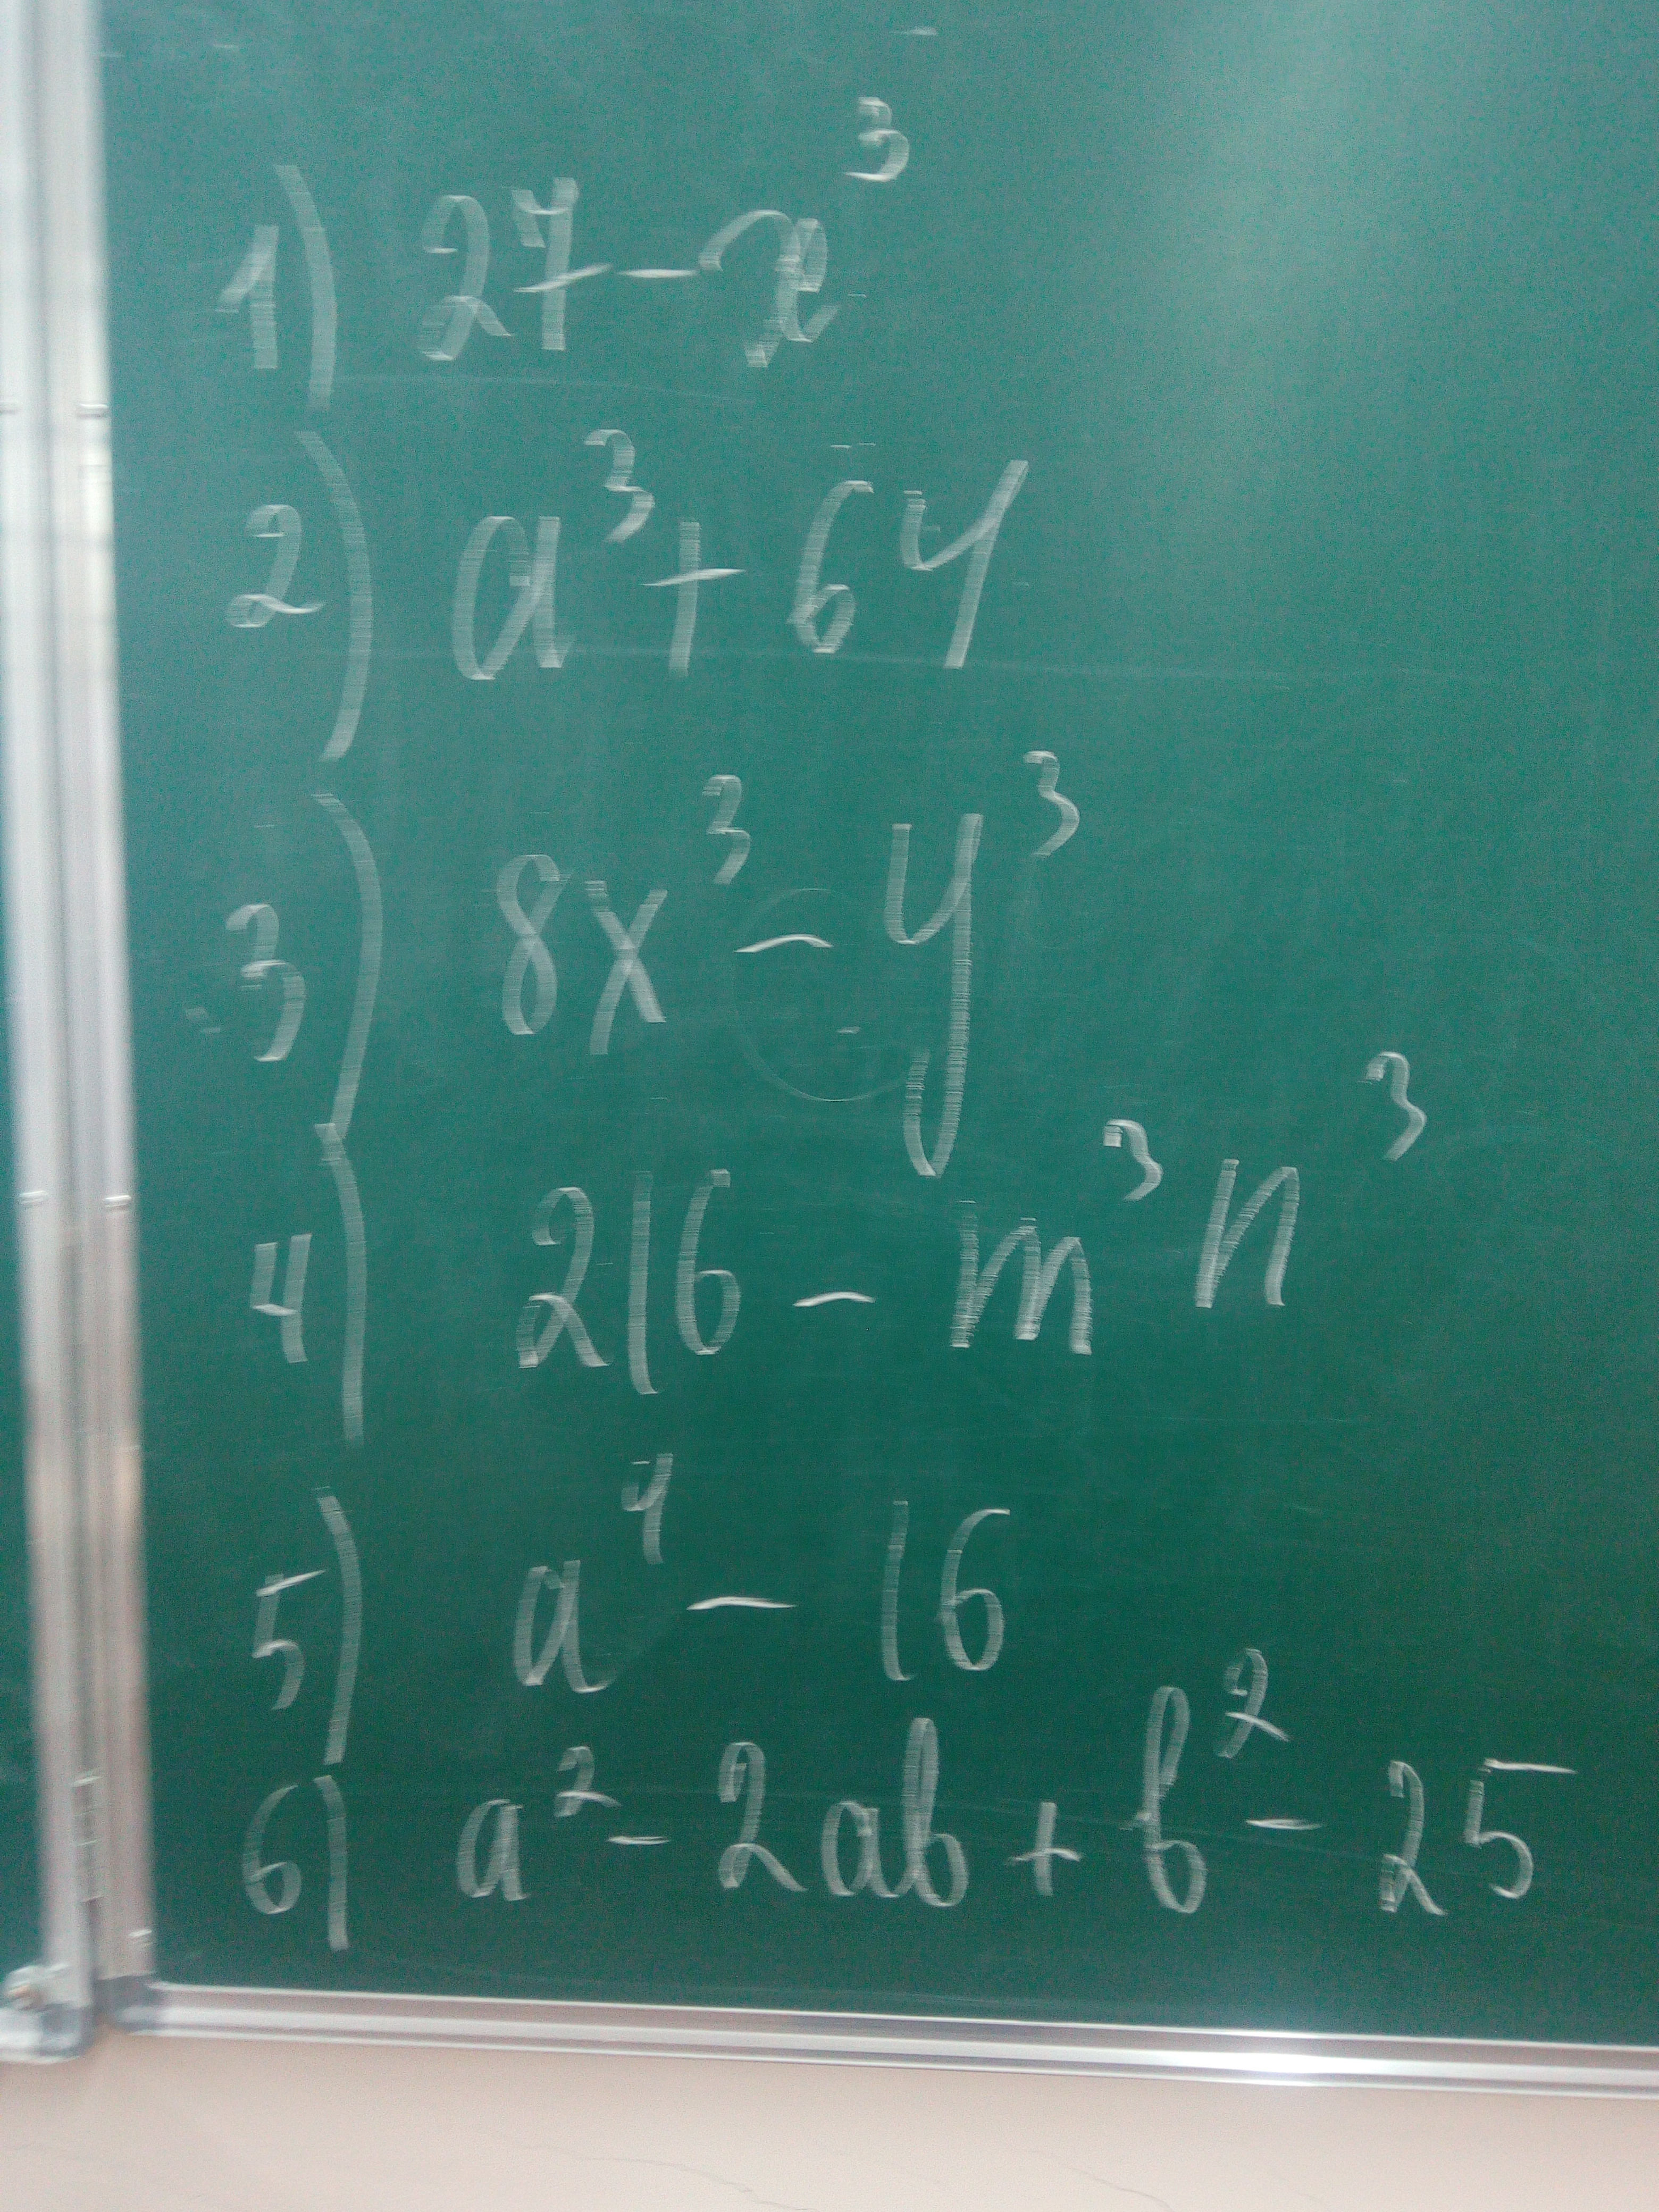 1) 27 - x³
2) a³ + 64
3) 8x³ - y³
4) 216 - m³n³
5) a⁴ - 16
6) a² - 2ab + b² - 25